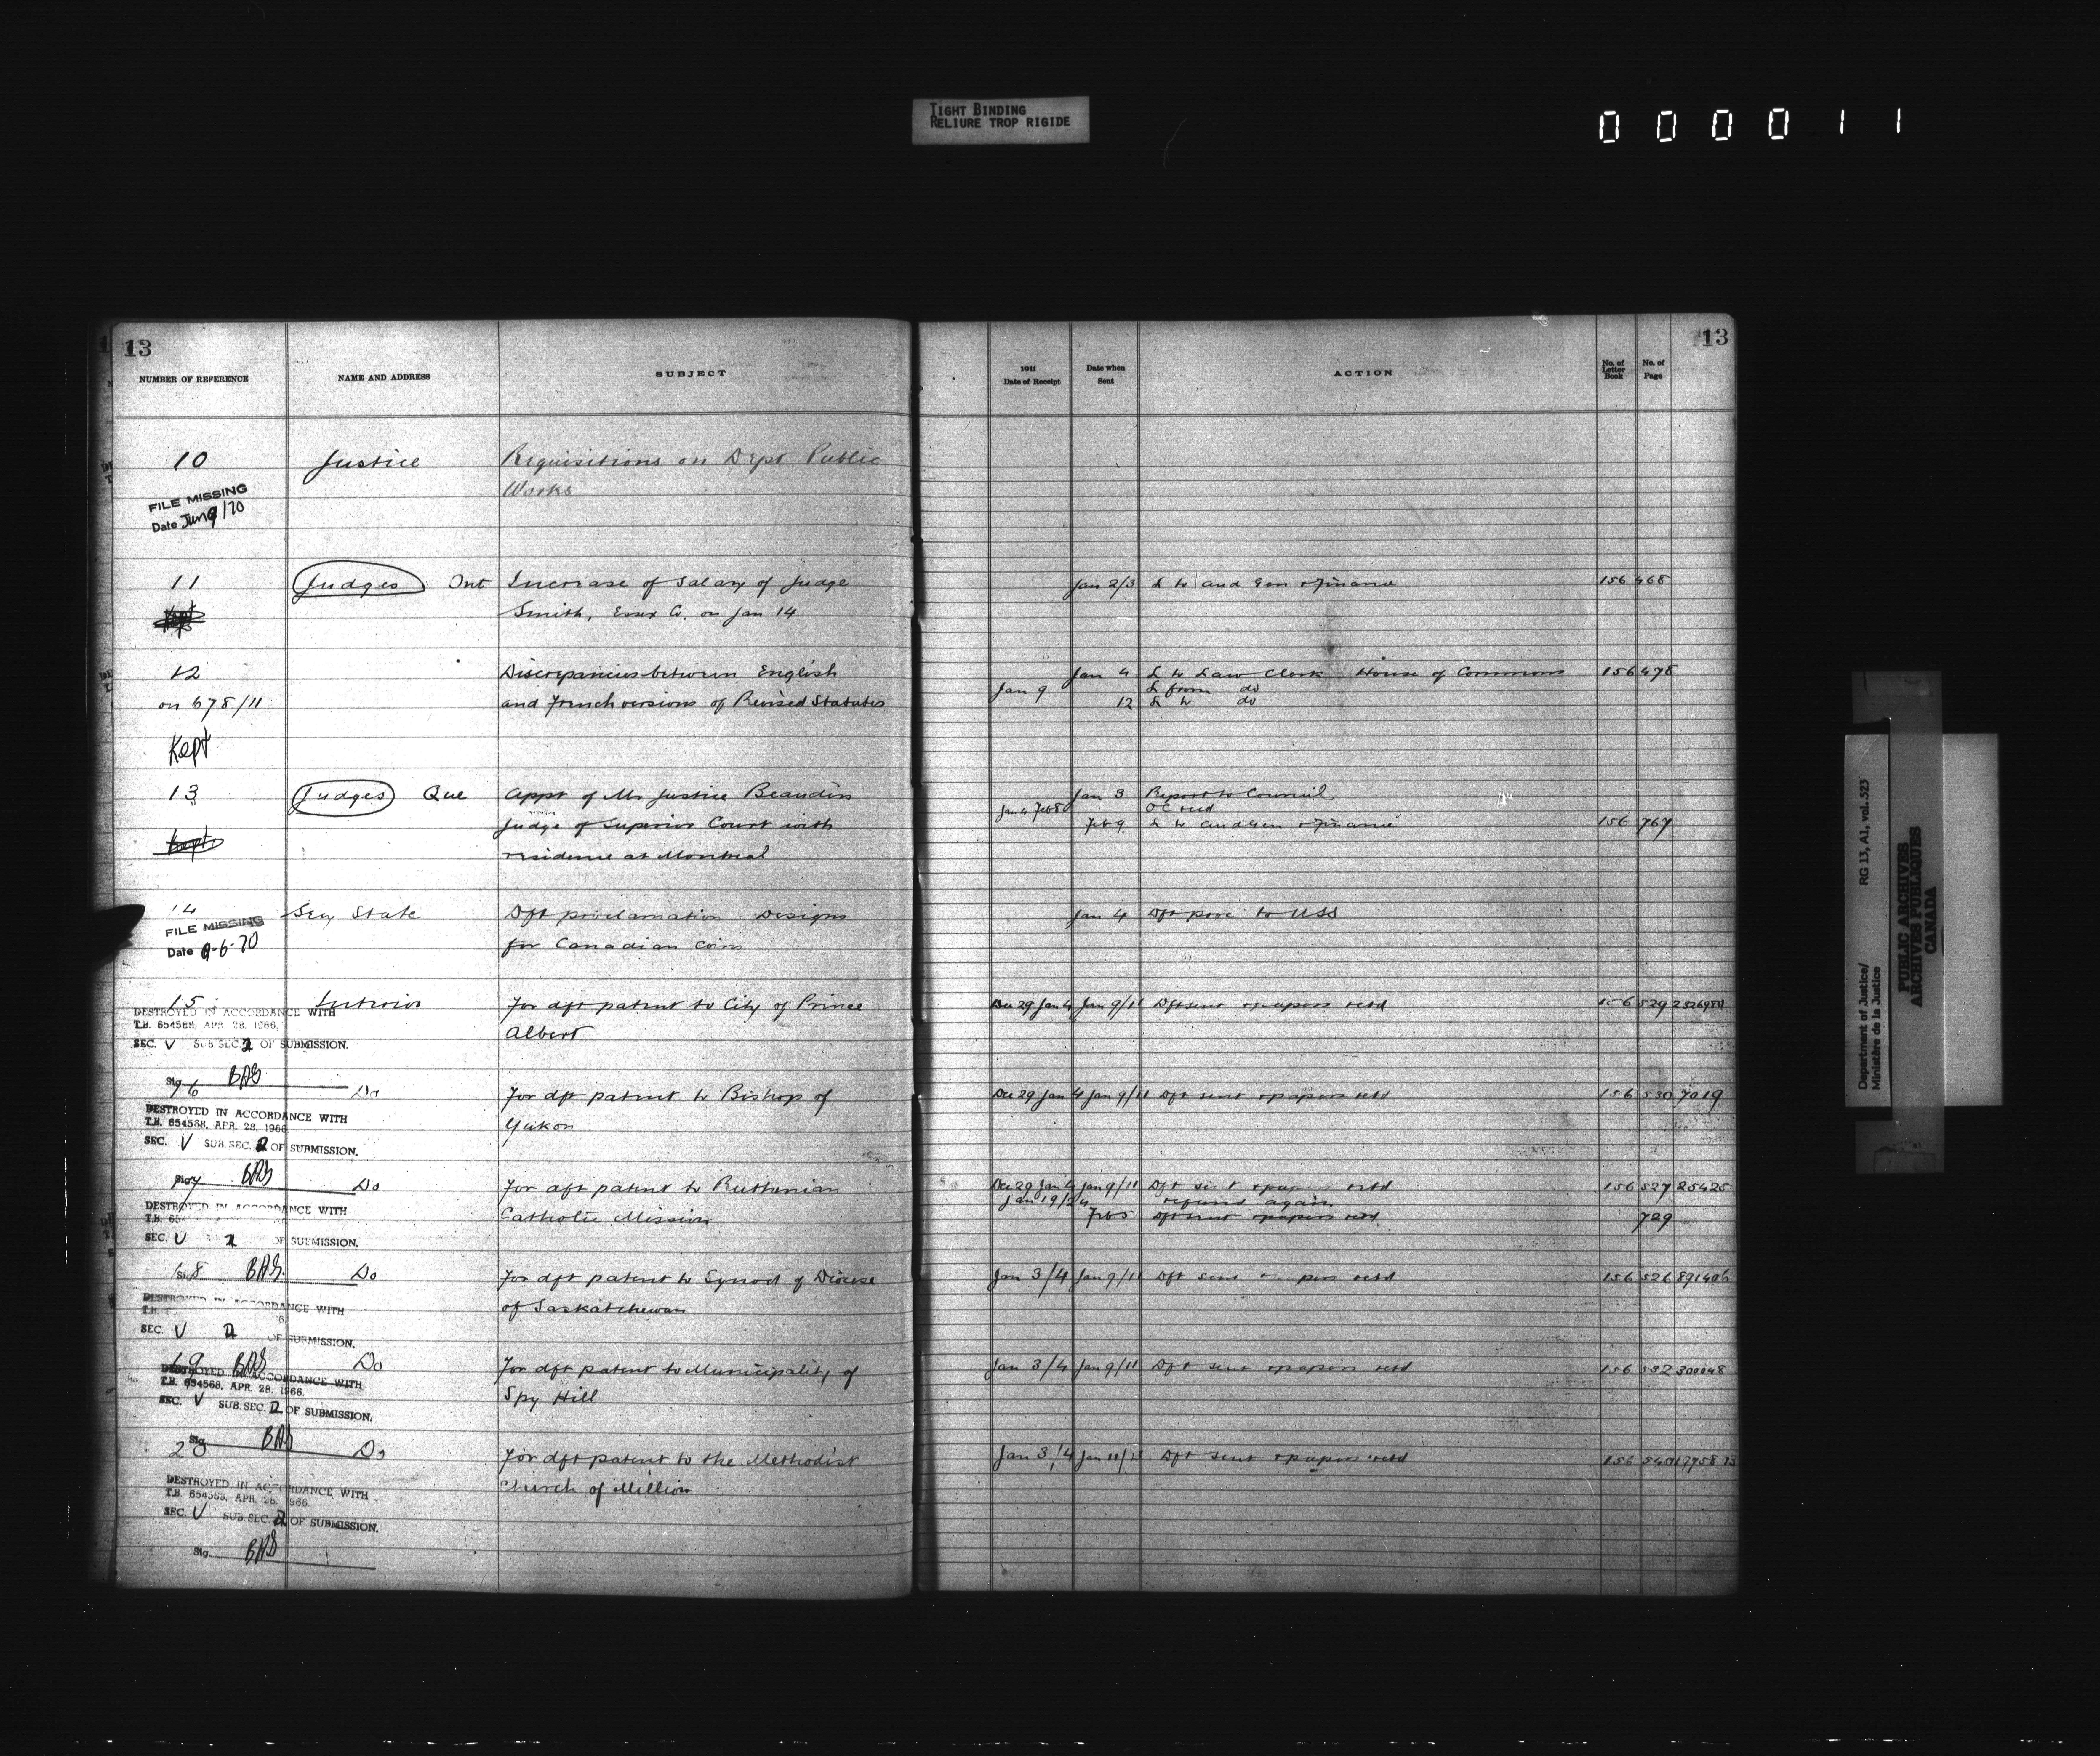 TIGHT BINDING
RELIURE TROP RIGIDE
000011
13
NUMBER OF REFERENCE NAME AND ADDRESS SUBJECT
10 Justice Requisitions on Dept Public
Works
FILE MISSING
Date Jun 9/70
11 Judges Ont Increase of Salary of Judge
Kept Smith, Essex Co. on Jan 14
12 Discrepancies between English
on 678/11 and French versions of Revised Statutes
Kept
13 Judges Que Appt of Mr Justice Beaudin
Judge of Superior Court with
Kept residence at Montreal
14 Secy State Dft proclamation Designs
FILE MISSING
for Canadian Coins
Date 9-6-70
15 Interior For dft patent to City of Prince
DESTROYED IN ACCORDANCE WITH
T.B. 654568, APR. 28, 1966,
Albert
SEC. V SUB.SEC. 2 OF SUBMISSION.
Sig. BAS
16 Do For dft patent to Bishop of
DESTROYED IN ACCORDANCE WITH
T.B. 654568, APR. 28, 1966
Yukon
SEC. V SUB.SEC. 2 OF SUBMISSION.
Sig. BAS
17 Do For dft patent to Ruthenian
DESTROYED IN ACCORDANCE WITH
Catholic Mission
SEC. V 2 OF SUBMISSION.
18 BAS Do For dft patent to Synod of Diocese
DESTROYED IN ACCORDANCE WITH
of Saskatchewan
SEC. V 2 OF SUBMISSION.
19 BAS Do For dft patent to Municipality of
DESTROYED IN ACCORDANCE WITH
T.B. 654568, APR. 28, 1966.
Spy Hill
SEC. V SUB.SEC. 2 OF SUBMISSION.
Sig. BAS
20 Do For dft patent to the Methodist
DESTROYED IN ACCORDANCE WITH
T.B. 654568, APR. 28, 1966
Church of Million
SEC. V SUB.SEC. 2 OF SUBMISSION.
Sig. BAS
13
1911 Date of Receipt Date when Sent ACTION No. of Letter Book No. of Page
Jan 2/3 L to Aud Gen & Finance 156 468
Jan 4 L to Law Clerk House of Commons 156 478
Jan 9 L from do
12 L to do
Jan 3 Report to Council
Jan 4 Feb 8 OC recd
Feb 9 L to Aud Gen & Finance 156 767
Jan 4 Dft proc to USS
Dec 29 Jan 4 Jan 9/11 Dft sent & papers retd 156 529
Dec 29 Jan 4 Jan 9/11 Dft sent & papers retd 156 530 7019
Dec 29 Jan 4 Jan 9/11 Dft sent & papers retd 156 527 25425
Jan 19/24 returned again
Feb 5 Dft sent & papers retd 729
Jan 3/4 Jan 9/11 Dft sent & papers retd 156 526 891406
Jan 3/4 Jan 9/11 Dft sent & papers retd 156 532 300048
Jan 3/4 Jan 11/13 Dft sent & papers retd 156 540
Department of Justice/ RG 13, A1, vol. 523
Ministère de la Justice
PUBLIC ARCHIVES
ARCHIVES PUBLIQUES
CANADA